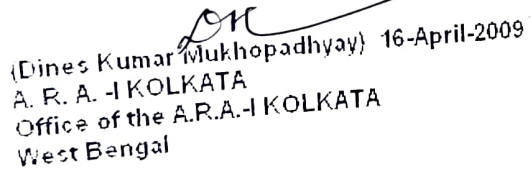 (Dines Kumar Mukhopadhyay) 16-April-2009
A. R. A. -I KOLKATA
Office of the A.R.A.-I KOLKATA
West Bengal